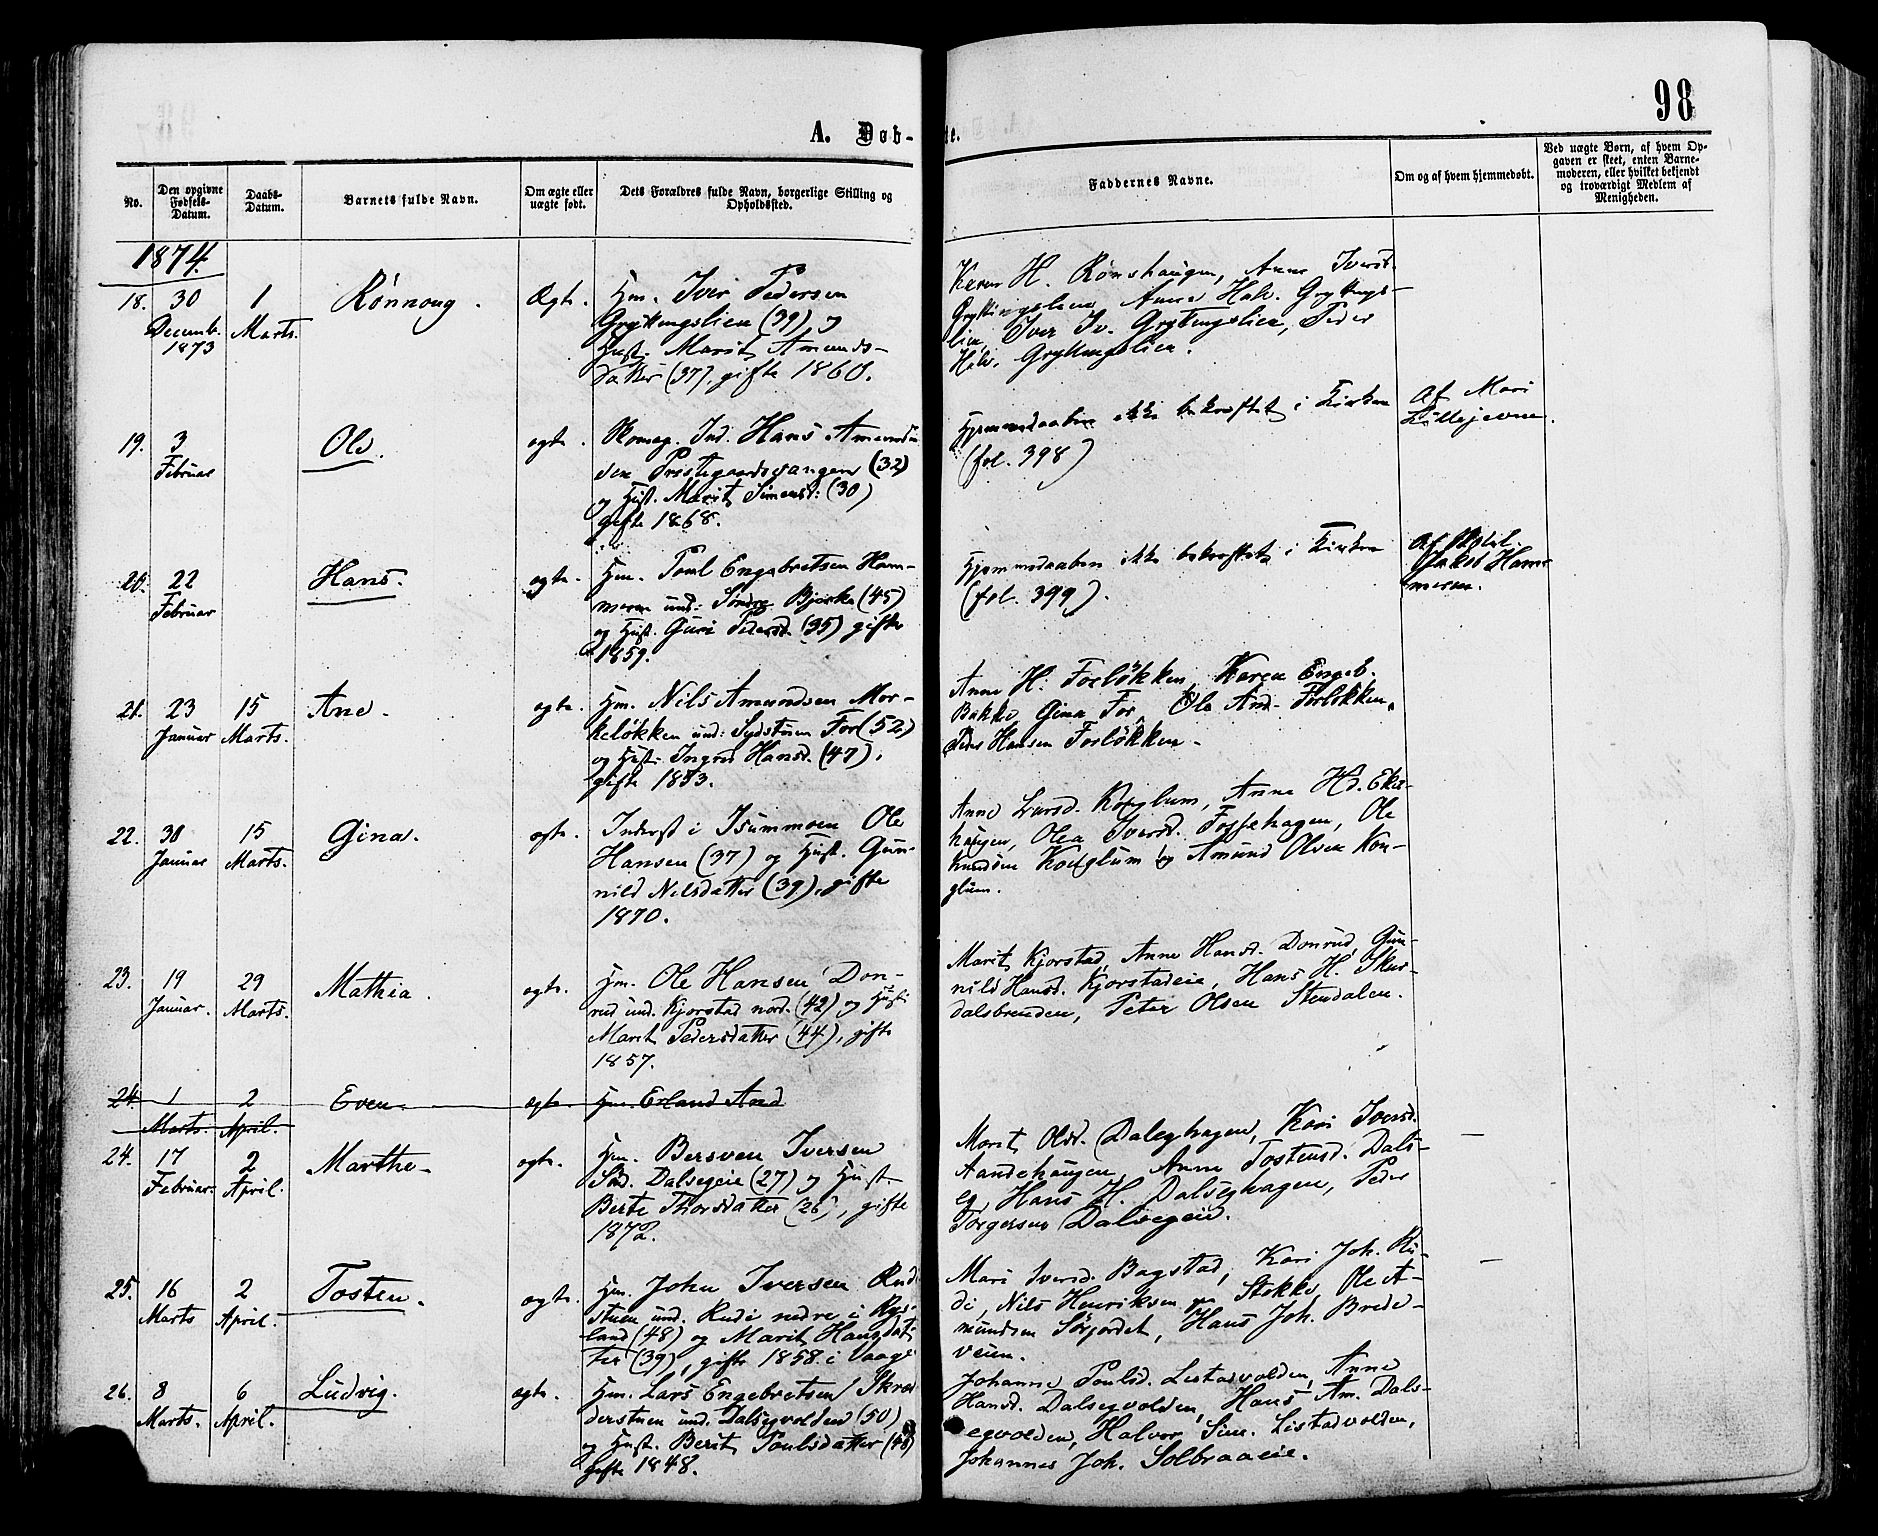 98
A. Døb-
te.
No.
Den opgivne
Fødsels-
Datum.
Daabs-
Datum.
Barnets fulde Navn.
Om ægte eller
uægte født.
Dets Forældres fulde Navn, borgerlige Stilling og
Opholdssted.
Faddernes Navne.
Om og af hvem hjemmedøbt.
Ved uægte Børn, af hvem Op-
gaven er skeet, enten Barne-
moderen, eller hvilket bekjendt
og troværdigt Medlem af
Menigheden.
1874.
18.
30
Decemb.
1873
1
Marts.
Rønnoug.
Ægte.
Hm. Iver Pedersen
Gryttingslien (39) og
Hust. Marit Amunds-
datter (37), gifte 1860.
Karen H. Rønshaugen, Anne Iversd.
Gryttingslien, Anne Halv. Gryttings-
lien, Iver Iv. Gryttingslien, Peder
Halv. Gryttingslien.
19.
3
Februar
Ole.
ægte.
Skomag. Ind. Hans Amund-
sen Prestegaardsvangen (32)
og Hust. Marit Simensd: (30)
gifte 1868.
Hjemmedaaben ikke bekræftet i Kirken
(fol. 398)
Af Mari
Lillejevne.
20.
22
Februar
Hans.
ægte.
Hm. Poul Engebretsen Ham-
meren und: Søndre Bjørke (45)
og Hust. Guri Pedersd. (35) gifte
1859.
Hjemmedaaben ikke bekræftet i Kirken
(fol. 399).
Jakob Ham-
meren.
21.
23
Januar
15
Marts.
Ane.
ægte.
Hm. Nils Amundsen Mor-
keløkken und: Sydstuen For (52)
og Hust. Ingrid Hansd. (47),
gifte 1873.
Anne H. Forløkken, Karen Engeb.
Bakke, Gina For, Ole And. Forløkken,
Peder Hansen Forløkken.
22.
30
Januar
15
Marts.
Gina.
ægte.
Inderst i Isummoen Ole
Hansen (37) og Hust. Gun-
nild Nilsdatter (39), gifte
1870.
Anne Larsd. Konglum, Anne Hd. Eke-
haugen, Olea Iversd. Fossehagen, Ole
Knudsen Konglum og Amund Olsen Kon-
glum.
23.
19
Januar.
29
Marts.
Mathea.
ægte.
Hm. Ole Hansen Don-
rud und. Kjorstad nord. (42) og Hust.
Marit Pedersdatter (44), gifte
1857.
Marit Kjorstad, Anne Hansd. Donrud, Gun-
nild Hansd. Kjorstadeie, Hans H. Skur-
dalsbrenden, Peter Olsen Stendalen.
24.
1
Marts.
2
April.
Even.
ægte.
Hm. Erland And
24.
17
Februar.
2
April.
Marthe.
ægte.
Hm. Bersven Iversen
Sdr. Dalsegeie (27) og Hust
Berte Thorsdatter (26), gifte
1872.
Marit Olsd. Daleghagen, Kari Iversd.
Aandehaugen, Anne Tostensd. Dals-
eg, Hans H. Dalseghagen, Peder
Torgersen Dalsegeie.
25.
16
Marts
2
April.
Tosten.
ægte.
Hm. John Iversen Rud
stuen und. Rudi nedre i Rys-
land (48) og Marit Hansdat
ter (39), gifte 1858 i Vaage
Mari Iversd. Bagstad, Kari Joh. Ru-
di, Nils Henriksen pa Stokke, Ole A-
mundsen Sørjordet, Hans Joh. Brede-
veien.
26.
8
Marts.
6
April.
Ludvig.
ægte.
Hm. Lars Engebretsen Skræd
derstuen und. Dalsegvolden (50)
og Hust. Berit Poulsdatter (48)
gifte 1848.
Johanne Poulsd. Listadvolden, Anne
Hansd. Dalsegvolden, Hans Am. Dals-
egvolden, Halvor Sim. Listadvolden,
Johannes Joh. Solbraaeie.